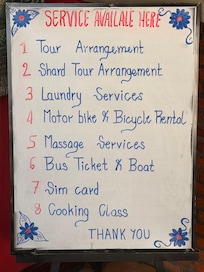 SERVICE AVAILALE HERE
1 Tour Arrangement
2 Shard Tour Arrangement
3 Laundry Services
4 Motor bike & Bicycle Rental
5 Massage Services
6 Bus Ticket & Boat
7 Sim card
8 Cooking Class
THANK YOU